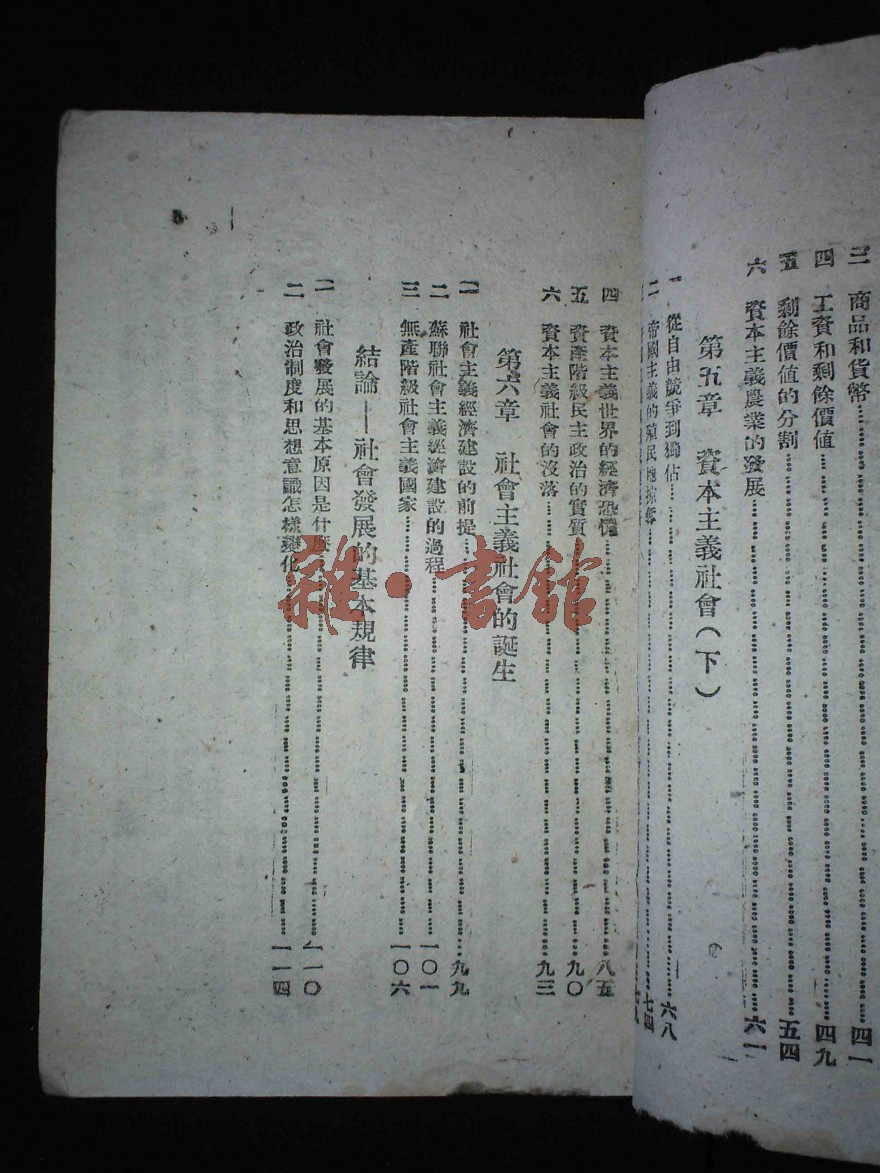 三 商品和貨幣 四一
四 工資和剩餘價值 四九
五 剩餘價值的分割 五四
六 資本主義農業的發展 六一
第五章 資本主義社會(下)
一 從自由競爭到獨佔 六八
二 帝國主義的殖民地掠奪 七四
四 資本主義世界的經濟恐慌 八五
五 資產階級民主政治的實質 九〇
六 資本主義社會的沒落 九三
第六章 社會主義社會的誕生
一 社會主義經濟建設的前提 九九
二 蘇聯社會主義經濟建設的過程 一〇一
三 無產階級社會主義國家 一〇六
結論——社會發展的基本規律
一 社會發展的基本原因是什麼 一一〇
二 政治制度和思想意識怎樣變化 一一四
雜·書館